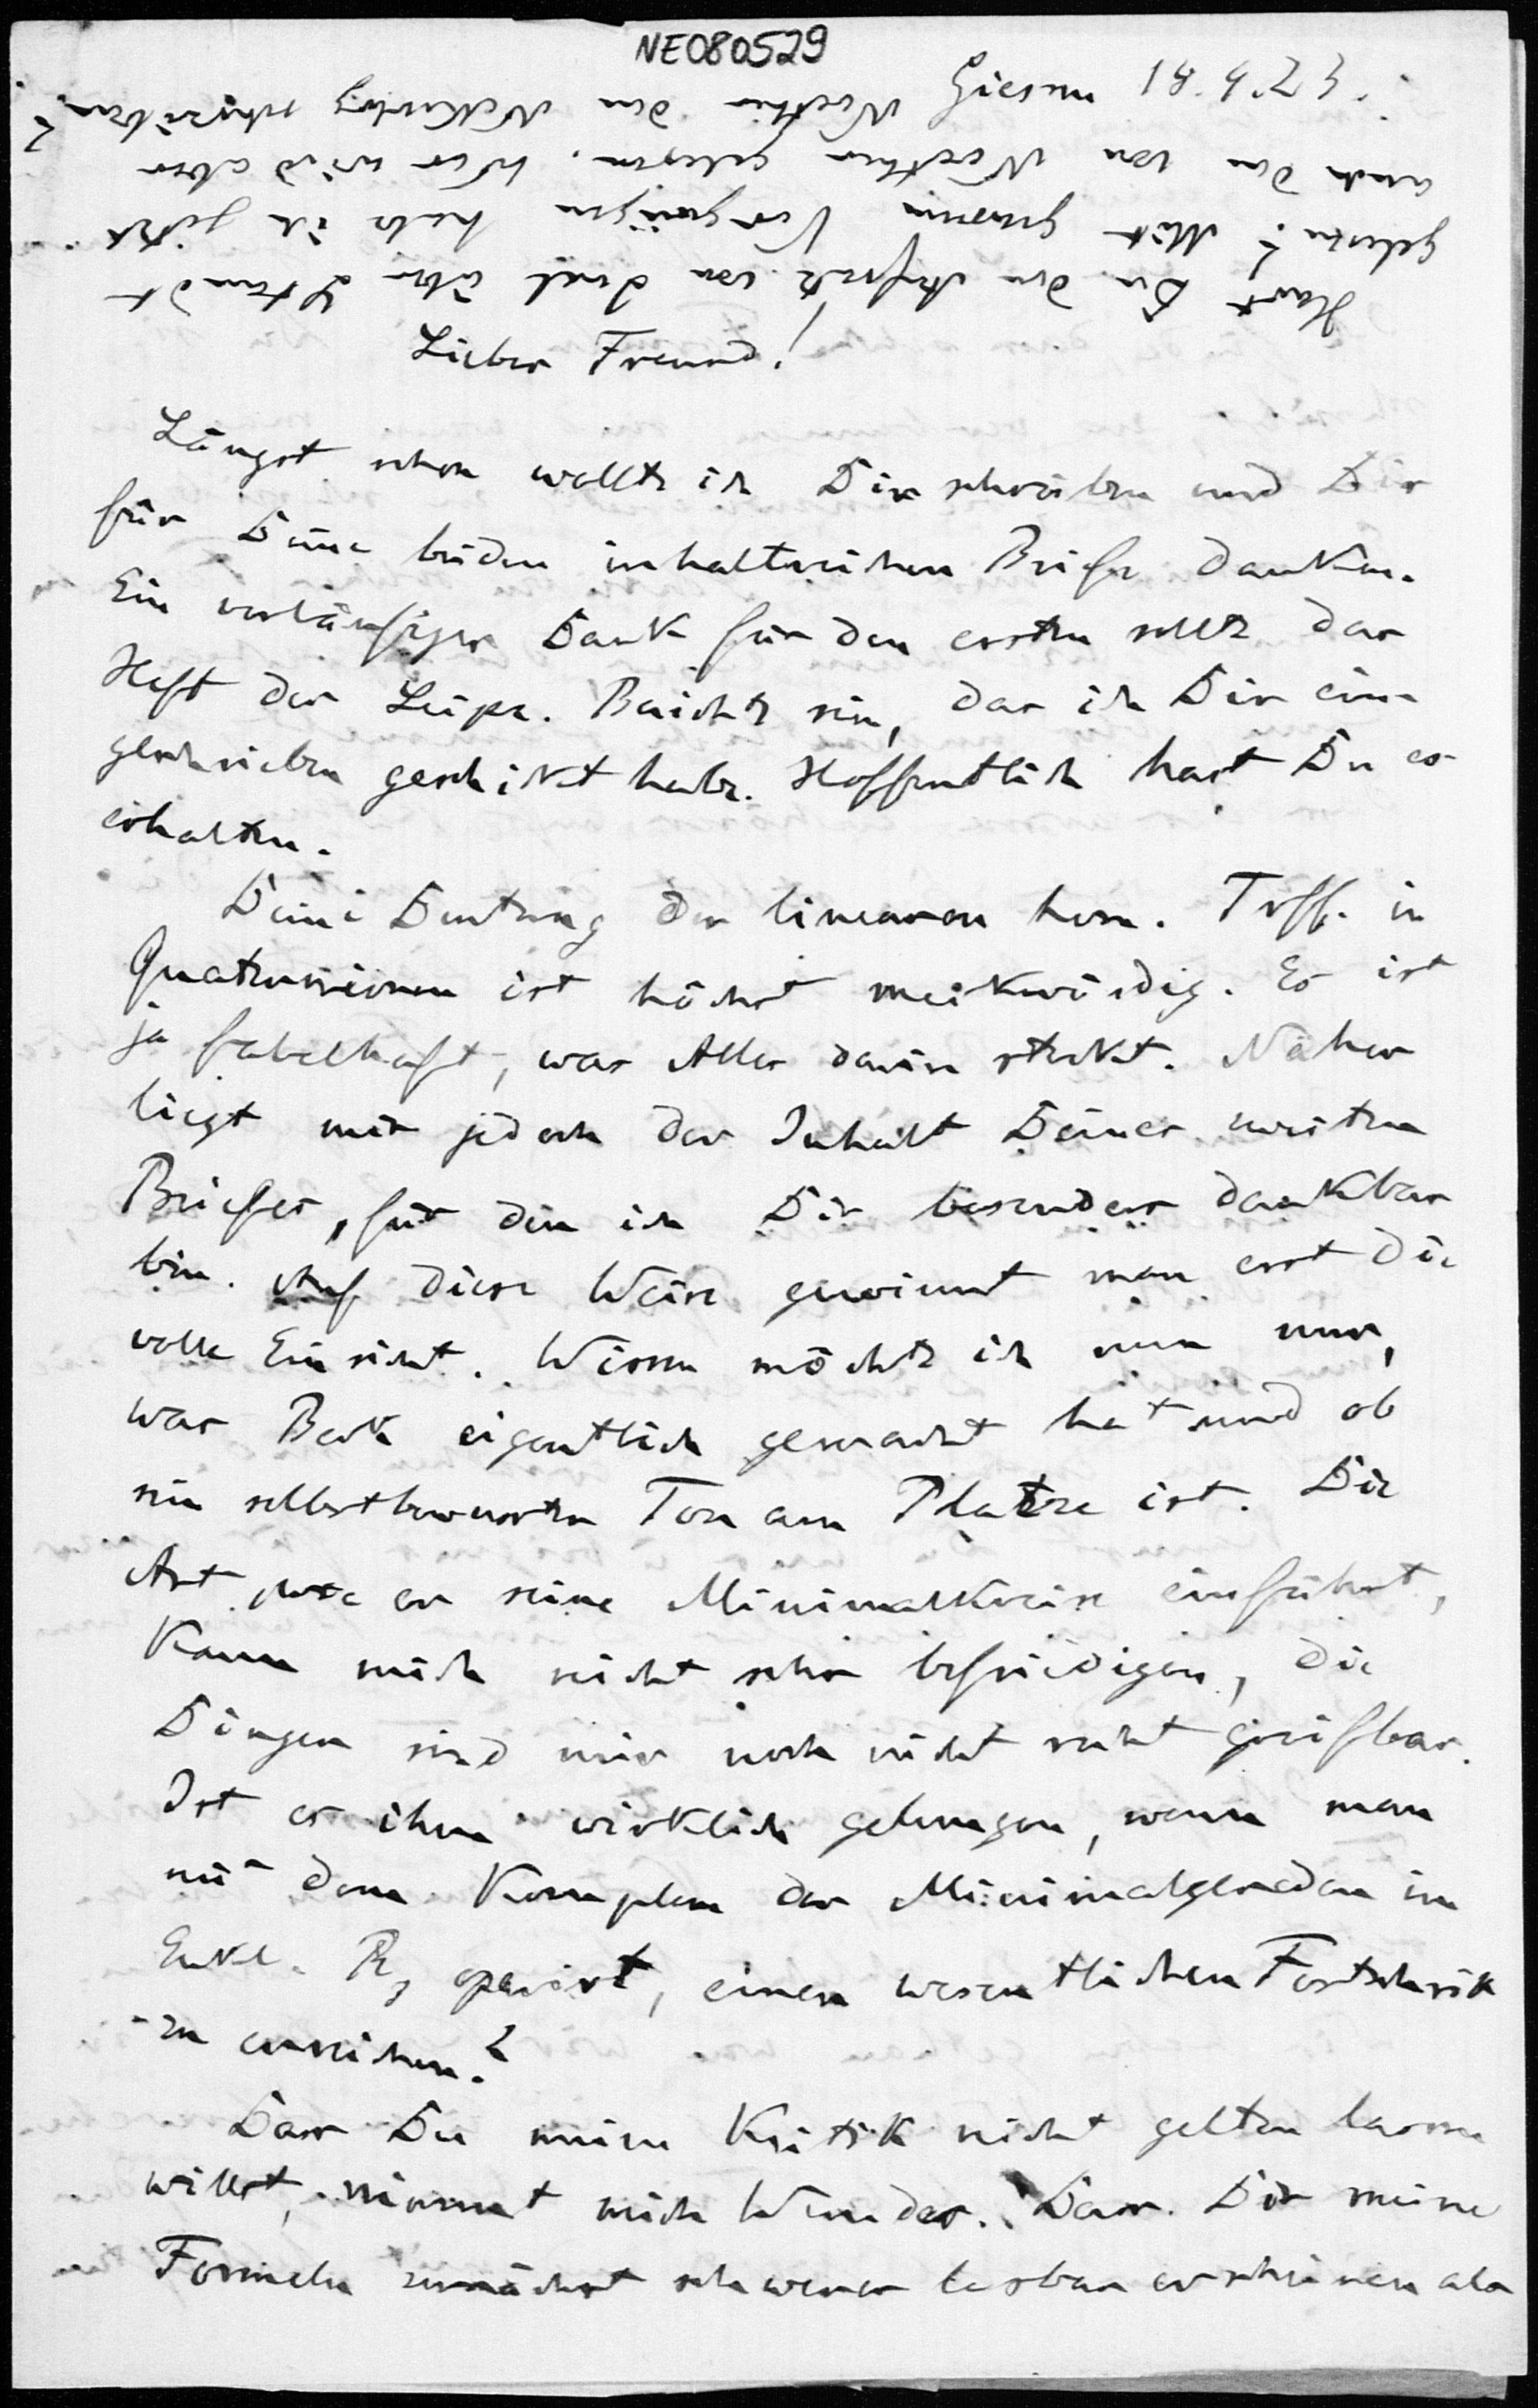 NE080529
Giessen 18.4.23.
Hast Du den Aufsatz von Study über
gelesen? Mit grossem Vergnügen habe ich jetzt
auch den von Noether gelesen. Wer wird aber
Noether den Nekrolog schreiben?
Lieber Freund!
Längst schon wollte ich Dir schreiben und Dir
für Deine beiden inhaltreichen Briefe danken.
Ein vorläufiger Dank für den ersten sollte das
Heft der Leipz. Berichte sein, das ich Dir ein-
geschrieben geschikt habe. Hoffentlich hast Du es
erhalten.
Deine Deutung der linearen hom. Trff. in
Quaternionen ist höchst merkwürdig. Es ist
ja fabelhaft, was Alles darin stekt. Näher
liegt mir jedoch der Inhalt Deines zweiten
Briefes, für den ich Dir besonders dankbar
bin. Auf diese Weise gewinnt man erst die
volle Einsicht. Wissen möchte ich nun nur,
was Beck eigentlich gemacht hat und ob
sein selbstbewusster Ton am Platze ist. Die
Art, wie er seine Minimalkreise einführt,
kann mich nicht sehr befriedigen, die
Dinger sind mir noch nicht recht greifbar.
Ist es ihm wirklich gelungen, wenn man
mit dem Komplex der Minimalgeraden im
Eukl. R₃ operirt, einen wesentlichen Fortschritt
zu erreichen?
Dass Du meine Kritik nicht gelten lassen
willst, nimmt mich Wunder. Dass Dir meine
Formeln zunächst schwerer lesbar erscheinen als